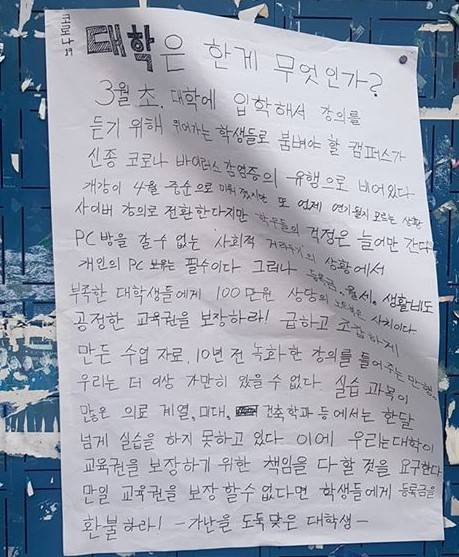 코로나19
대학은 한게 무엇인가?
3월 초. 대학에 입학해서 강의를
듣기 위해 뛰어가는 학생들로 붐벼야 할 캠퍼스가
신종 코로나 바이러스 감염증의 유행으로 비어있다
개강이 4월 중순으로 미뤄졌지만 또 언제 연기될지 모르는 상황
사이버 강의로 전환한다지만 학우들의 걱정은 늘어만 간다
PC방을 갈 수 없는 '사회적 거리두기'의 상황에서
개인의 PC 보유는 필수이다 그러나 등록금, 월세, 생활비도
부족한 대학생들에게 100만원 상당의 노트북은 사치이다
공정한 교육권을 보장하라! 급하고 조잡하게
만든 수업 자료, 10년 전 녹화한 강의를 틀어주는 만행,
우리는 더 이상 가만히 있을 수 없다 실습 과목이
많은 의료 계열, 미대, 건축학과 등에서는 한달
넘게 실습을 하지 못하고 있다 이에 우리는 대학이
교육권을 보장하기 위한 책임을 다할 것을 요구한다
만일 교육권을 보장 할 수 없다면 학생들에게 등록금을
환불하라! -가난을 도둑맞은 대학생-